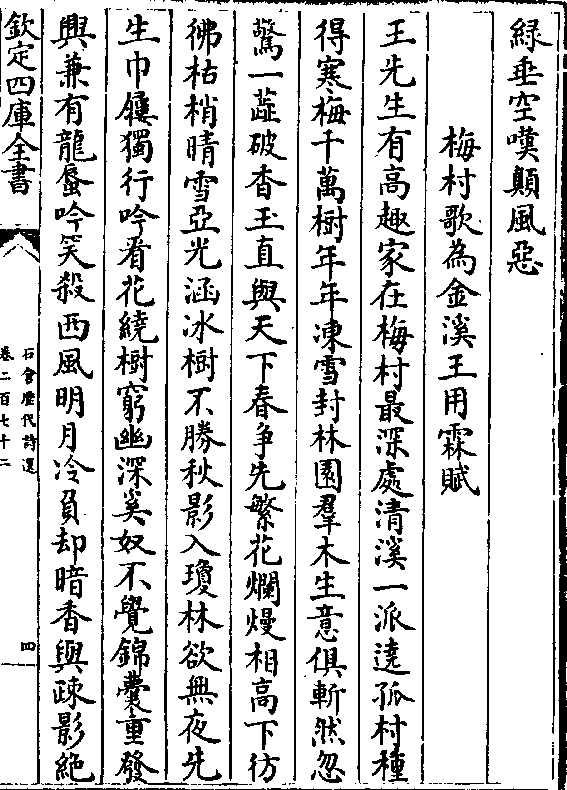 綠垂空嘆顛風惡
梅村歌為金溪王用霖賦
王先生有高趣家在梅村最深處清溪一派遶孤村種
得寒梅千萬樹年年凍雪封林園羣木生意俱斬然忽
驚一蘂破香玉直與天下春争先繁花爛熳相高下彷
彿枯梢晴雪亞光涵冰樹不勝秋影入瓊林欲無夜先
生巾屨獨行吟看花繞樹窮幽深奚奴不覺錦囊重發
興兼有龍蜃吟笑殺西風明月冷負却暗香與疎影絶
欽定四庫全書
石倉歷代詩選
卷二百七十二
四